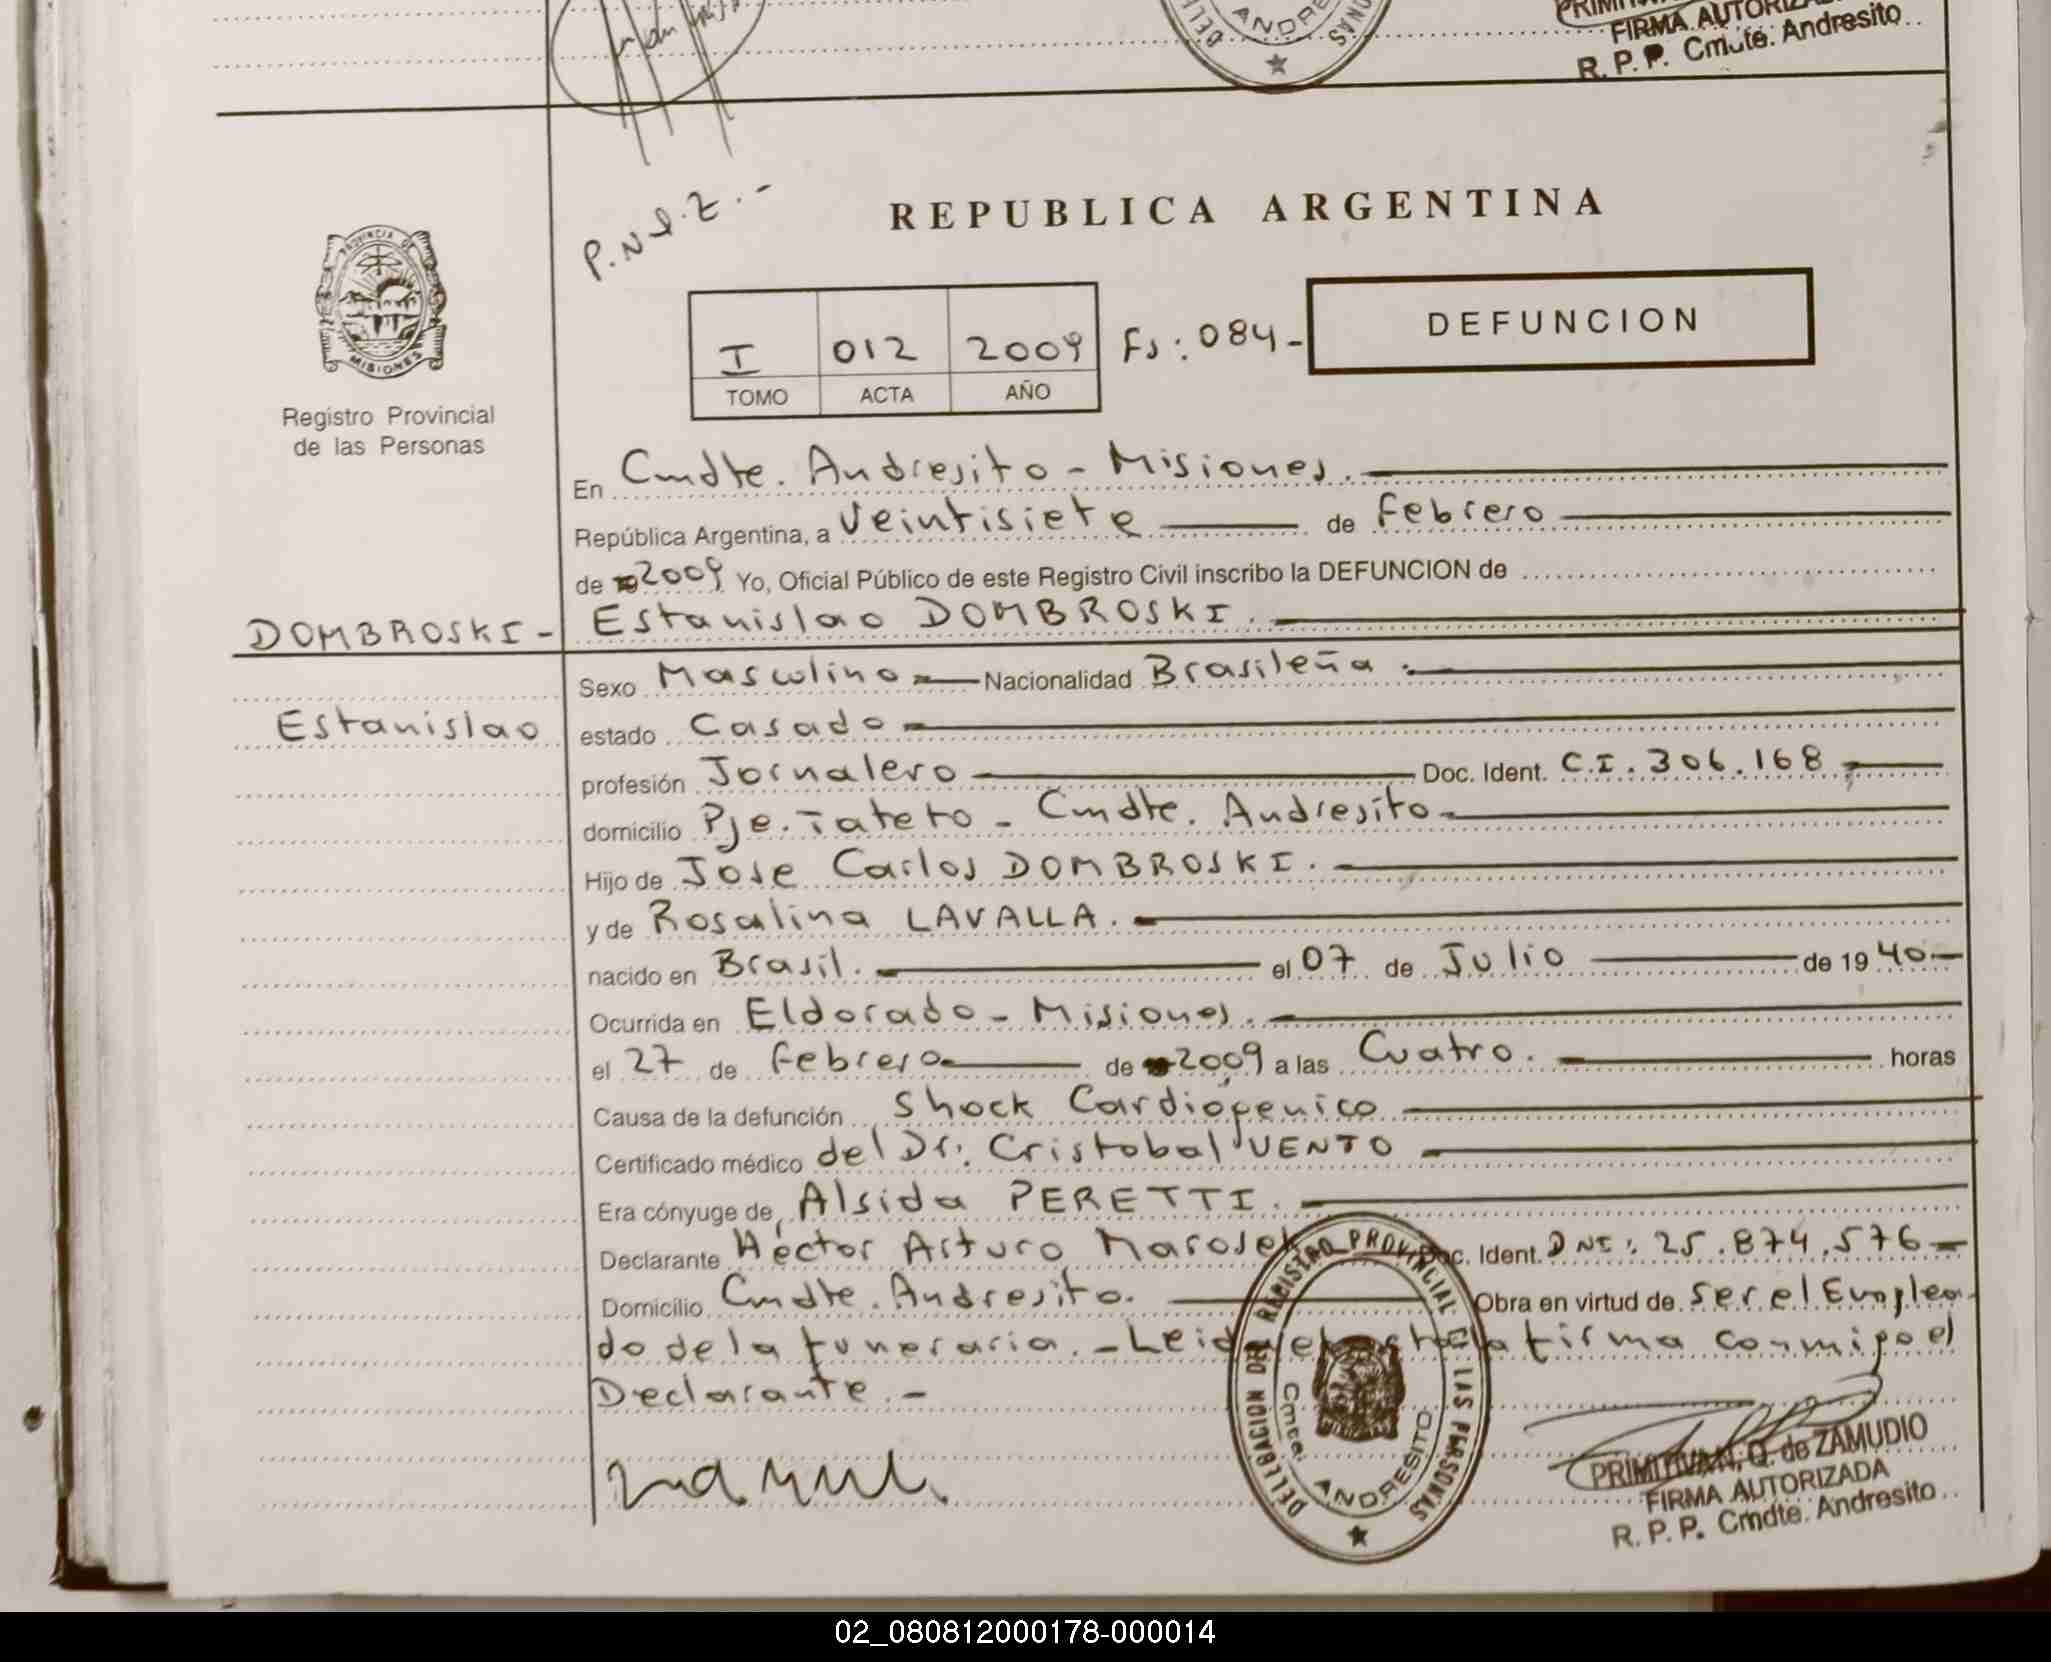 PRIMITIVA
FIRMA AUTORIZADA
R. P. P. Cmdte. Andresito
ANDRE
P.N.I.Z.-
REPUBLICA ARGENTINA
PROVINCIA DE MISIONES
I 012 2009 Fs: 084-
TOMO ACTA AÑO
DEFUNCION
Registro Provincial
de las Personas
En Cmdte. Andresito - Misiones.
República Argentina, a Veintisiete de Febrero
de 2009 Yo, Oficial Público de este Registro Civil inscribo la DEFUNCION de
DOMBROSKI - Estanislao DOMBROSKI.
Sexo Masculino Nacionalidad Brasileña.
Estanislao estado Casado
profesión Jornalero Doc. Ident. C.I. 306.168
domicilio Pje. Tateto - Cmdte. Andresito
Hijo de Jose Carlos DOMBROSKI.
y de Rosalina LAVALLA.
nacido en Brasil. el 07 de Julio de 1940.
Ocurrida en Eldorado - Misiones.
el 27 de Febrero de 2009 a las Cuatro. horas
Causa de la defunción Shock Cardiógenico
Certificado médico del Dr. Cristobal VENTO
Era cónyuge de Alsida PERETTI.
Declarante Héctor Arturo Marosek Doc. Ident. DNI: 25.874.576
Domicilio Cmdte. Andresito. Obra en virtud de ser el Emplea
do de la funeraria. - Leida el acta la firma conmigo el
Declarante. -
DELEGACION DEL REGISTRO PROVINCIAL DE LAS PERSONAS
Cmte. ANDRESITO
PRIMITIVA N. Q. de ZAMUDIO
FIRMA AUTORIZADA
R. P. P. Cmdte. Andresito
02_080812000178-000014